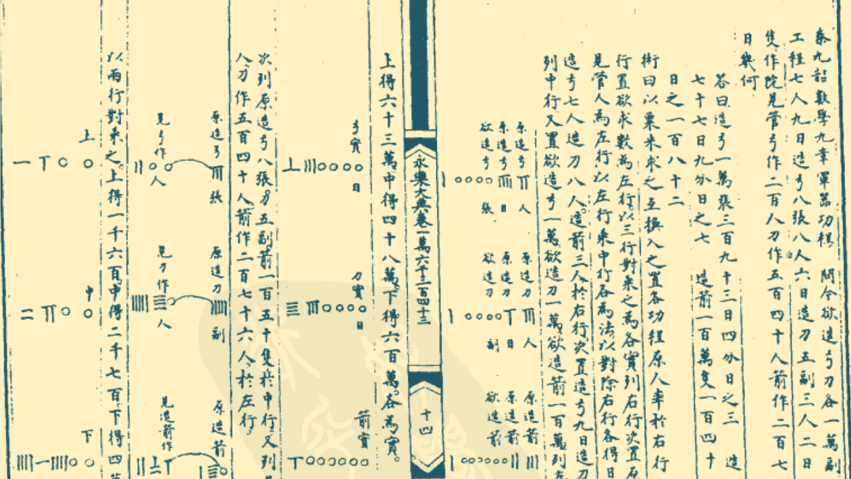 秦九韶數學九章軍器功程 問今欲造弓刀各一萬副
工程七人九日造弓八張八人六日造刀五副三人二日
隻作院見管弓作二百人刀作五百四十人箭作二百七
日幾何
答曰造弓一萬張三百九十三日四分日之三 造
七十七日九分日之七 造箭一百萬隻一百四十
日之一百八十二
術曰以粟米求之互換入之置各功程原人率於右行
行置欲求數為左行以三行對乘之為各實列右行次置原
見管人為左行以左行乘中行各為法以對除右行各得日
造弓七人造刀八人造箭三人於右行次置造弓九日造刀
列中行又置欲造弓一萬欲造刀一萬欲造箭一百萬列左
原造弓 人 原造刀 人 原造箭
原造弓 日 原造刀 日 原造箭
欲造弓 張 欲造刀 副 欲造箭
永樂大典卷一萬六千三百四十三 十四
上得六十三萬中得四十八萬。下得六百萬。各為實。
弓實 日 刀實 日 箭實
次列原造弓八張。刀五副箭一百五十隻於中行又列
人刀作五百四十人箭作二百七十六人於左行
原造弓 張 原造刀 副 原造箭
見弓作 人 見刀作 人 見造箭作
以兩行對乘之。上得一千六百中得二千七百下得四
上 中 下